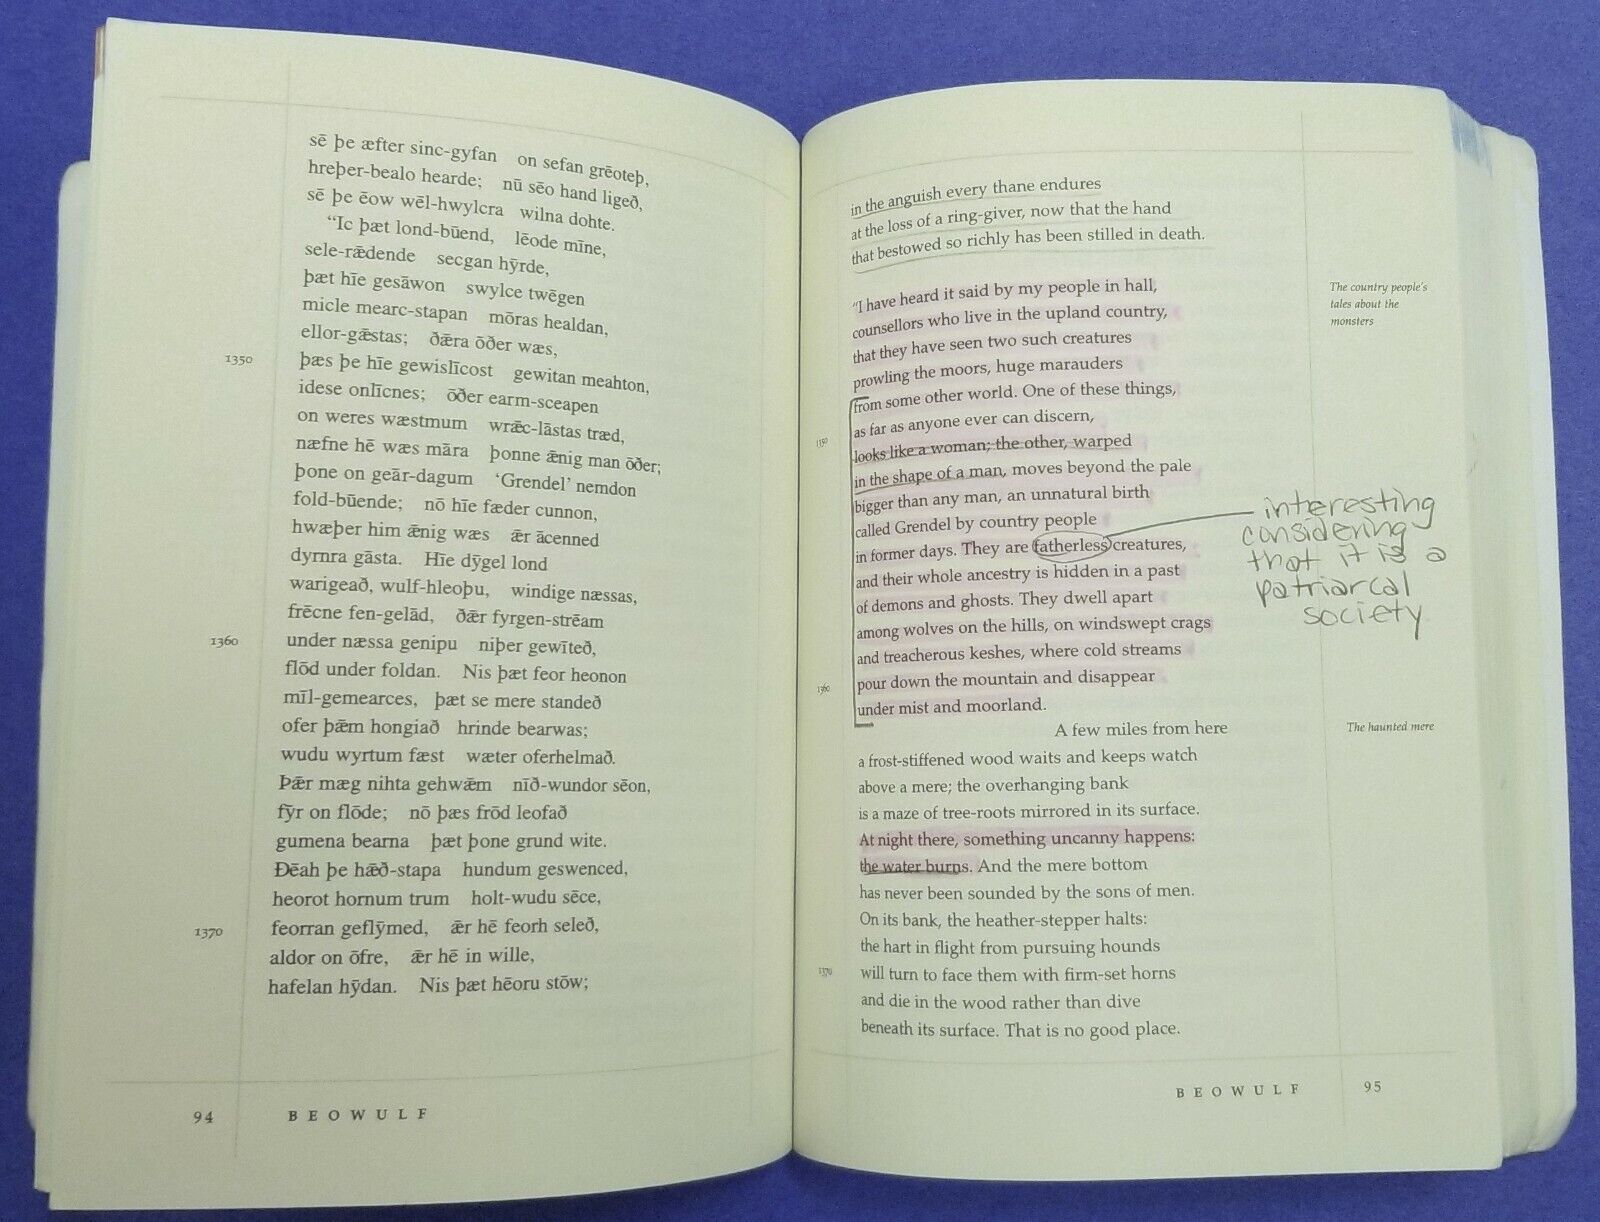 sē þe æfter sinc-gyfan on sefan grēoteþ,
hreþer-bealo hearde; nū sēo hand ligeð,
sē þe ēow wēl-hwylcra wilna dohte.
“Ic þæt lond-būend, lēode mīne,
sele-rǣdende secgan hȳrde,
þæt hīe gesāwon swylce twēgen
micle mearc-stapan mōras healdan,
ellor-gǣstas; ðǣra ōðer wæs,
1350 þæs þe hīe gewislīcost gewitan meahton,
idese onlīcnes; ōðer earm-sceapen
on weres wæstmum wrǣc-lāstas træd,
næfne hē wæs māra þonne ǣnig man ōðer;
þone on geār-dagum ‘Grendel’ nemdon
fold-būende; nō hīe fæder cunnon,
hwæþer him ǣnig wæs ǣr ācenned
dyrnra gāsta. Hīe dȳgel lond
warigeað, wulf-hleoþu, windige næssas,
frēcne fen-gelād, ðǣr fyrgen-strēam
1360 under næssa genipu niþer gewīteð,
flōd under foldan. Nis þæt feor heonon
mīl-gemearces, þæt se mere standeð
ofer þǣm hongiað hrinde bearwas;
wudu wyrtum fæst wæter oferhelmað.
Þǣr mæg nihta gehwǣm nīð-wundor sēon,
fȳr on flōde; nō þæs frōd leofað
gumena bearna þæt þone grund wite.
Ðēah þe hǣð-stapa hundum geswenced,
heorot hornum trum holt-wudu sēce,
1370 feorran geflȳmed, ǣr hē feorh seleð,
aldor on ōfre, ǣr hē in wille,
hafelan hȳdan. Nis þæt hēoru stōw;
94 BEOWULF
in the anguish every thane endures
at the loss of a ring-giver, now that the hand
that bestowed so richly has been stilled in death.
“I have heard it said by my people in hall,
counsellors who live in the upland country,
that they have seen two such creatures
prowling the moors, huge marauders
from some other world. One of these things,
as far as anyone ever can discern,
1350 looks like a woman; the other, warped
in the shape of a man, moves beyond the pale
bigger than any man, an unnatural birth
called Grendel by country people
in former days. They are fatherless creatures,
and their whole ancestry is hidden in a past
of demons and ghosts. They dwell apart
among wolves on the hills, on windswept crags
and treacherous keshes, where cold streams
1360 pour down the mountain and disappear
under mist and moorland.
A few miles from here
a frost-stiffened wood waits and keeps watch
above a mere; the overhanging bank
is a maze of tree-roots mirrored in its surface.
At night there, something uncanny happens:
the water burns. And the mere bottom
has never been sounded by the sons of men.
On its bank, the heather-stepper halts:
the hart in flight from pursuing hounds
1370 will turn to face them with firm-set horns
and die in the wood rather than dive
beneath its surface. That is no good place.
The country people's
tales about the
monsters
interesting
considering
that it is a
patriarcal
society
The haunted mere
BEOWULF 95